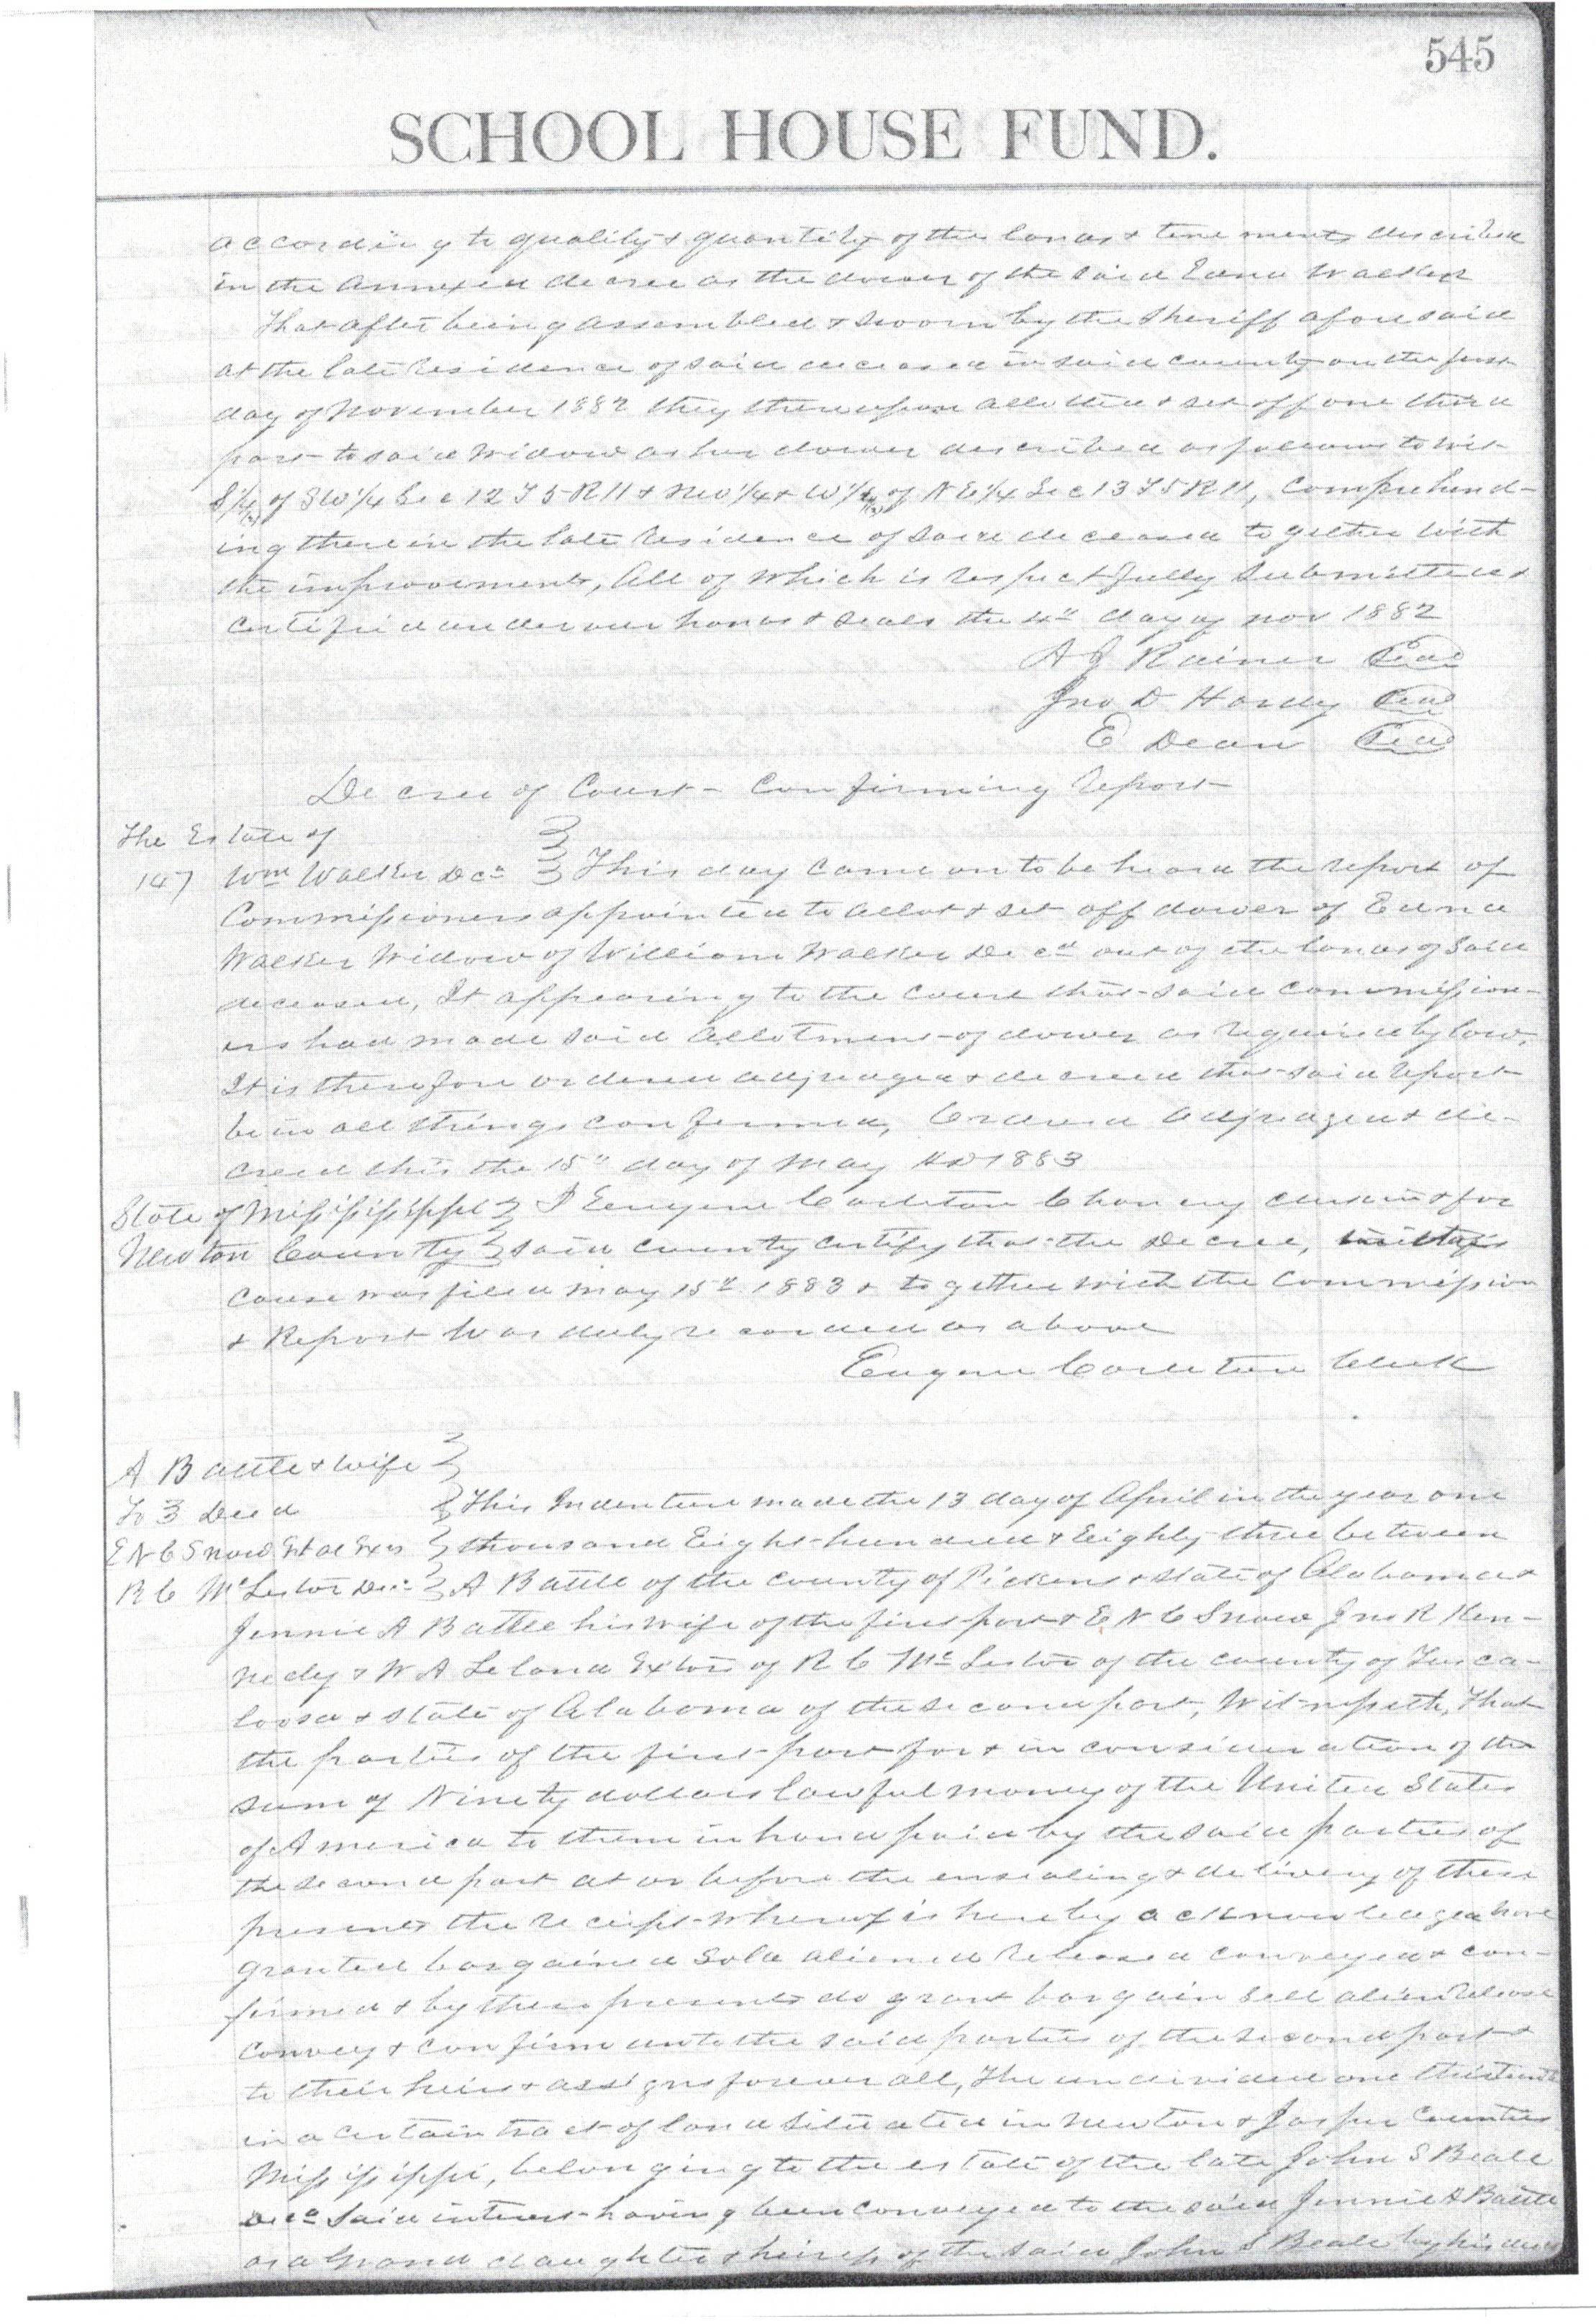 545
SCHOOL HOUSE FUND.
according to quality & quantity of the lands & tenements described
in the annexed decree as the dower of the said Edna Walker
That after being assembled & sworn by the Sheriff aforesaid
at the late residence of said deceased in said county on the first
day of November 1882 they thereupon allotted & set off one third
part to said widow as her dower described as follows to wit
of SW 1/4 Sec 12 T 5 R 11 & NW 1/4 & W of NE 1/4 Sec 13 T 5 R 11, Comprehend-
ing therein the late residence of said deceased together with
the improvements, All of which is respectfully submitted &
certified under our hands & seals the 4th day of Nov 1882
A J Rainer Seal
Jno D Hardy Seal
E Dean Seal
Decree of Court - Confirming Report
The Estate of
147 Wm Walker Decd This day came on to be heard the report of
Commissioners appointed to allot & set off dower of Edna
Walker Widow of William Walker Decd out of the lands of said
deceased, It appearing to the court that said commission-
ers had made said allotment of dower as required by law,
It is therefore ordered adjudged & decreed that said report
be in all things confirmed, Ordered adjudged & de-
creed this the 15th day of May AD 1883
State of Mississippi I Eugene Carleton Chancery clerk in & for
Newton County said county certify that the Decree, in
cause was filed May 15th 1883 & together with the Commission
& Report was duly recorded as above
Eugene Carleton Clerk
A Battle & wife
To 3 Deed This Indenture made the 13 day of April in the year one
E N C Snow Et al Exrs thousand Eight hundred & Eighty three between
R C McLester Decd A Battle of the county of Pickens & state of Alabama &
Jennie A Battle his wife of the first part & E N C Snow Jno R Ken-
nedy & W A Leland Extors of R C McLester of the county of Tusca-
loosa & state of Alabama of the second part, Witnesseth, That
the parties of the first part for & in consideration of the
sum of Ninety dollars lawful money of the United States
of America to them in hand paid by the said parties of
the second part at or before the ensealing & delivery of these
presents the receipt whereof is hereby acknowledged have
granted bargained sold aliened released conveyed & con-
firmed & by these presents do grant bargain sell alien release
convey & confirm unto the said parties of the second part &
to their heirs & assigns forever all, The undivided one thirteenth
in a certain tract of land situated in Newton & Jasper Counties
Mississippi, belonging to the estate of the late John S Beall
Decd Said interest having been conveyed to the said Jennie A Battle
as a Grand daughter & heiress of the said John S Beall by his